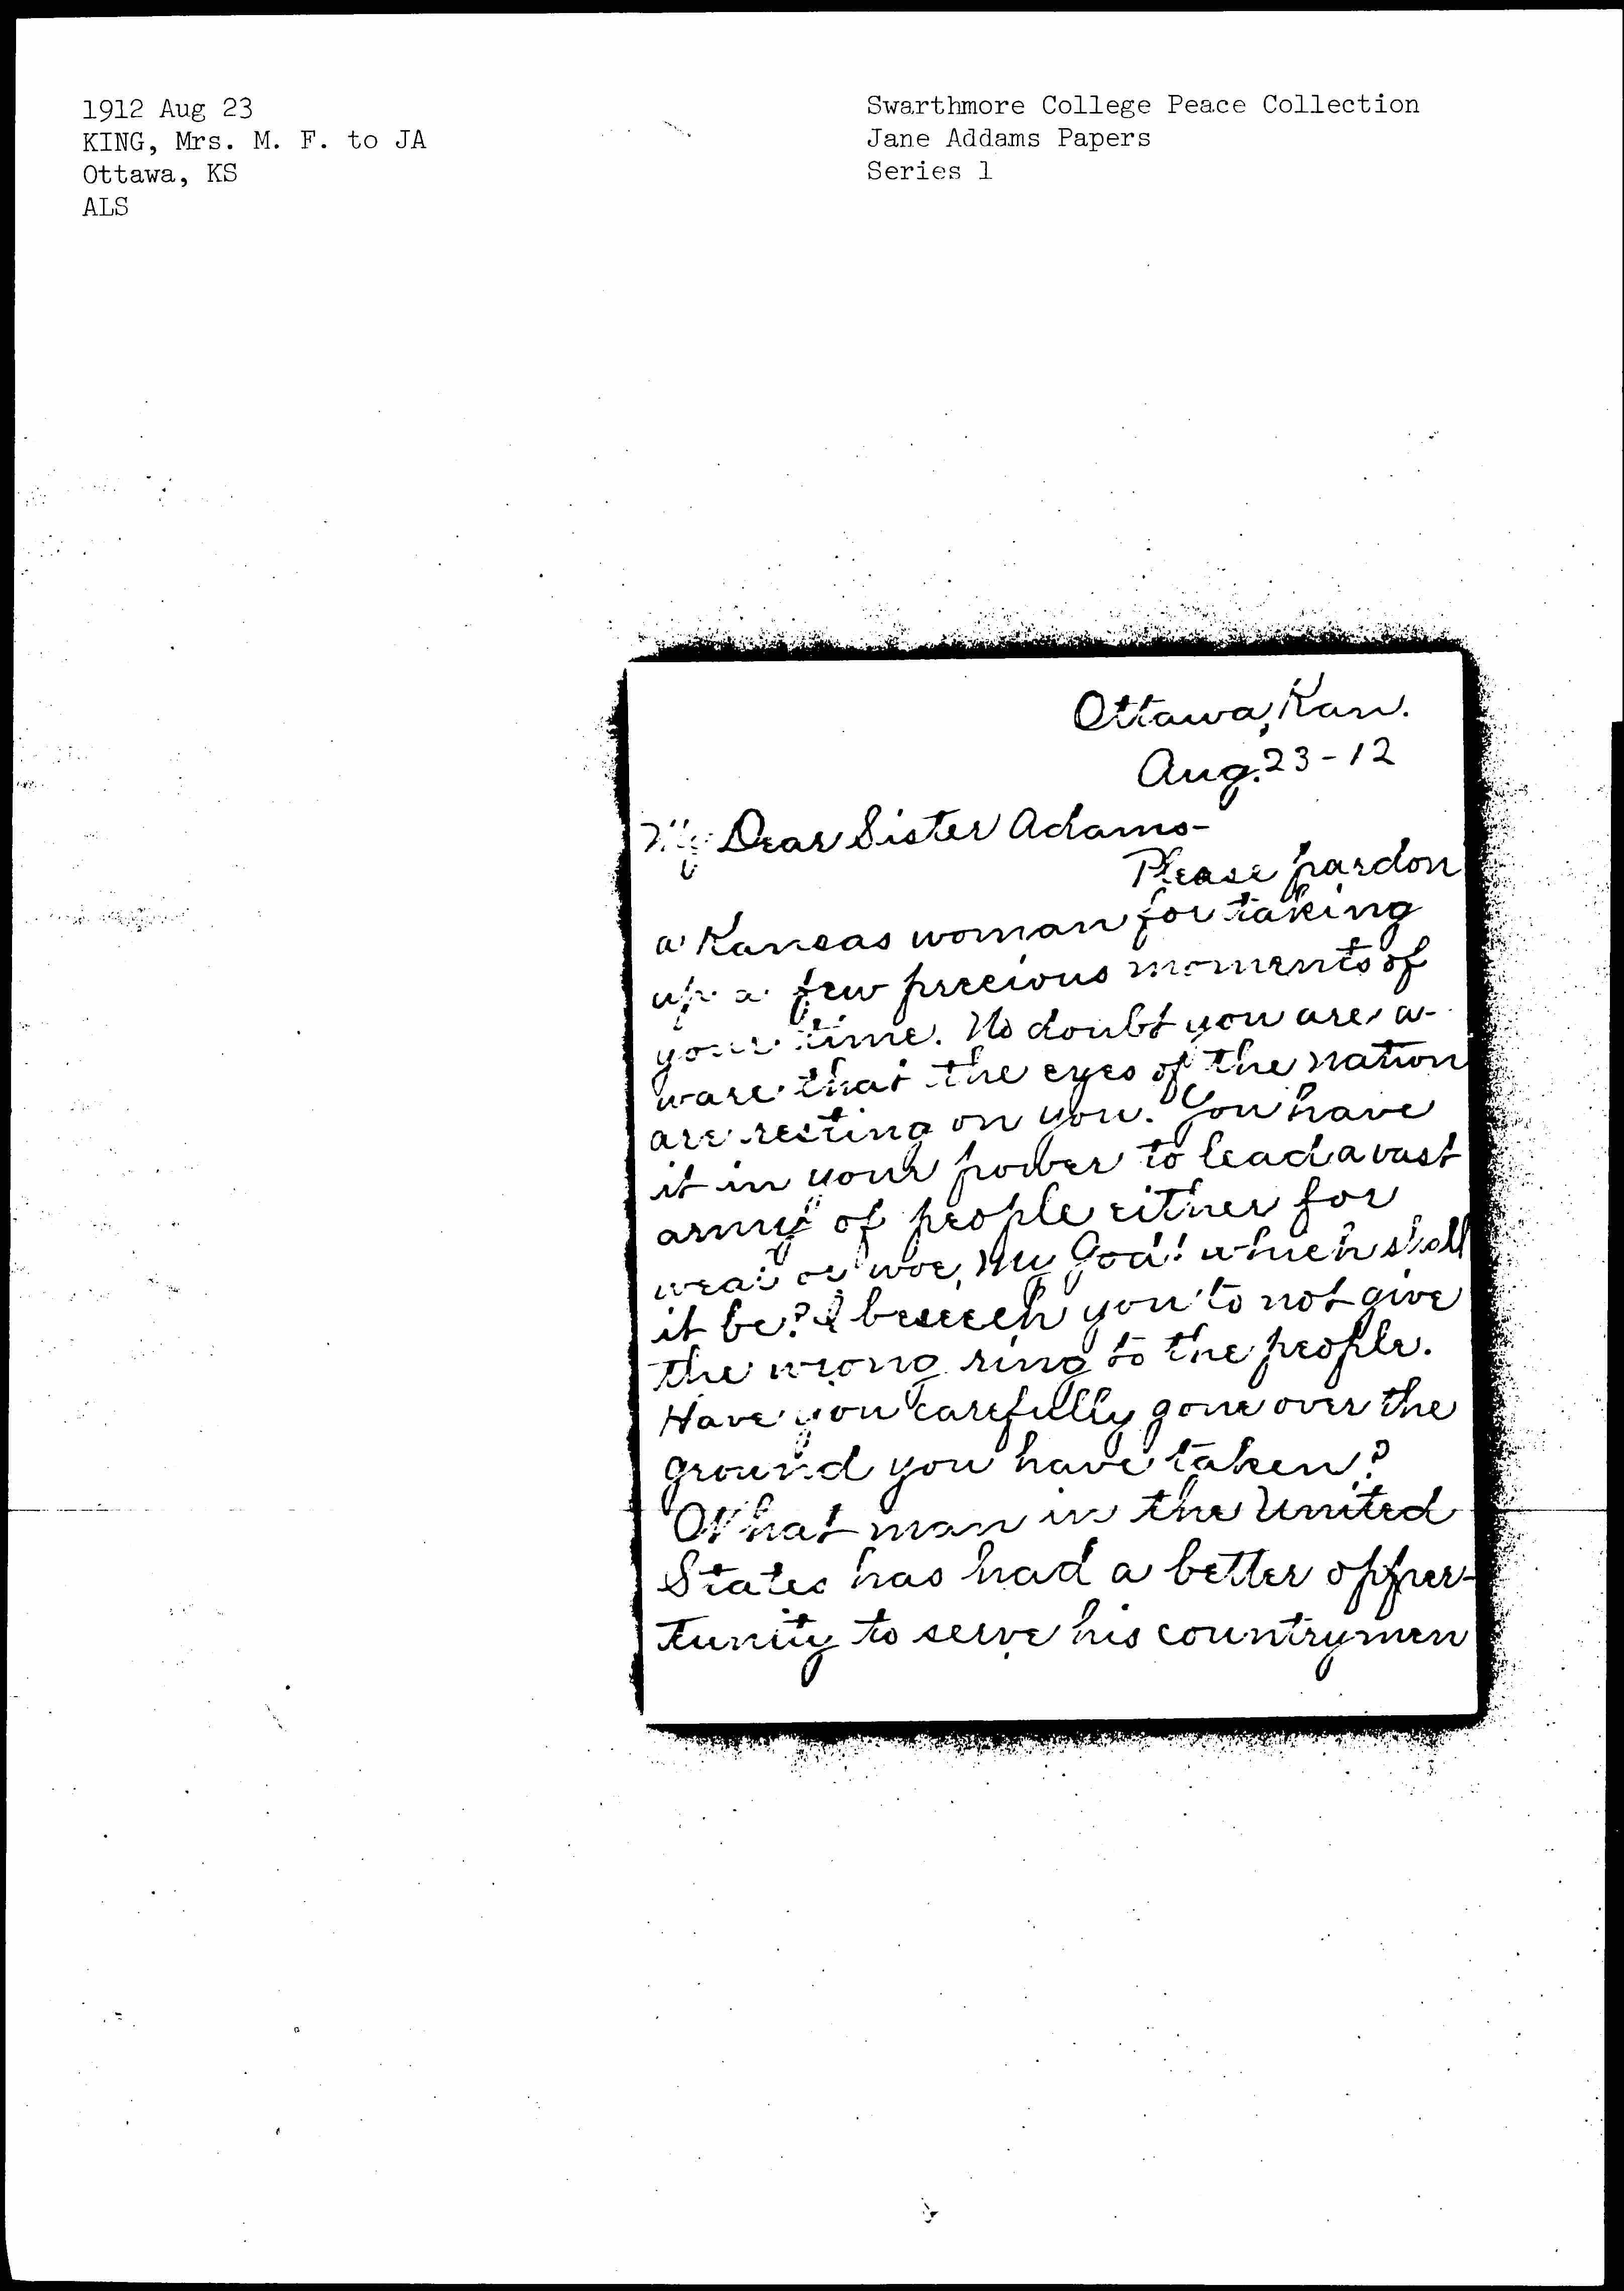 1912 Aug 23
KING, Mrs. M. F. to JA
Ottawa, KS
ALS
Swarthmore College Peace Collection
Jane Addams Papers
Series 1
Ottawa, Kan.
Aug. 23-12
My Dear Sister Adams-
Please pardon
a Kansas woman for taking
up a few precious moments of
your time. No doubt you are a-
ware that the eyes of the nation
are resting on you. You have
it in your power to lead a vast
army of people either for
weal or woe, My God! which shall
it be? I beseech you to not give
the wrong ring to the people.
Have you carefully gone over the
ground you have taken?
What man in the United
States has had a better opper-
tunity to serve his countrymen